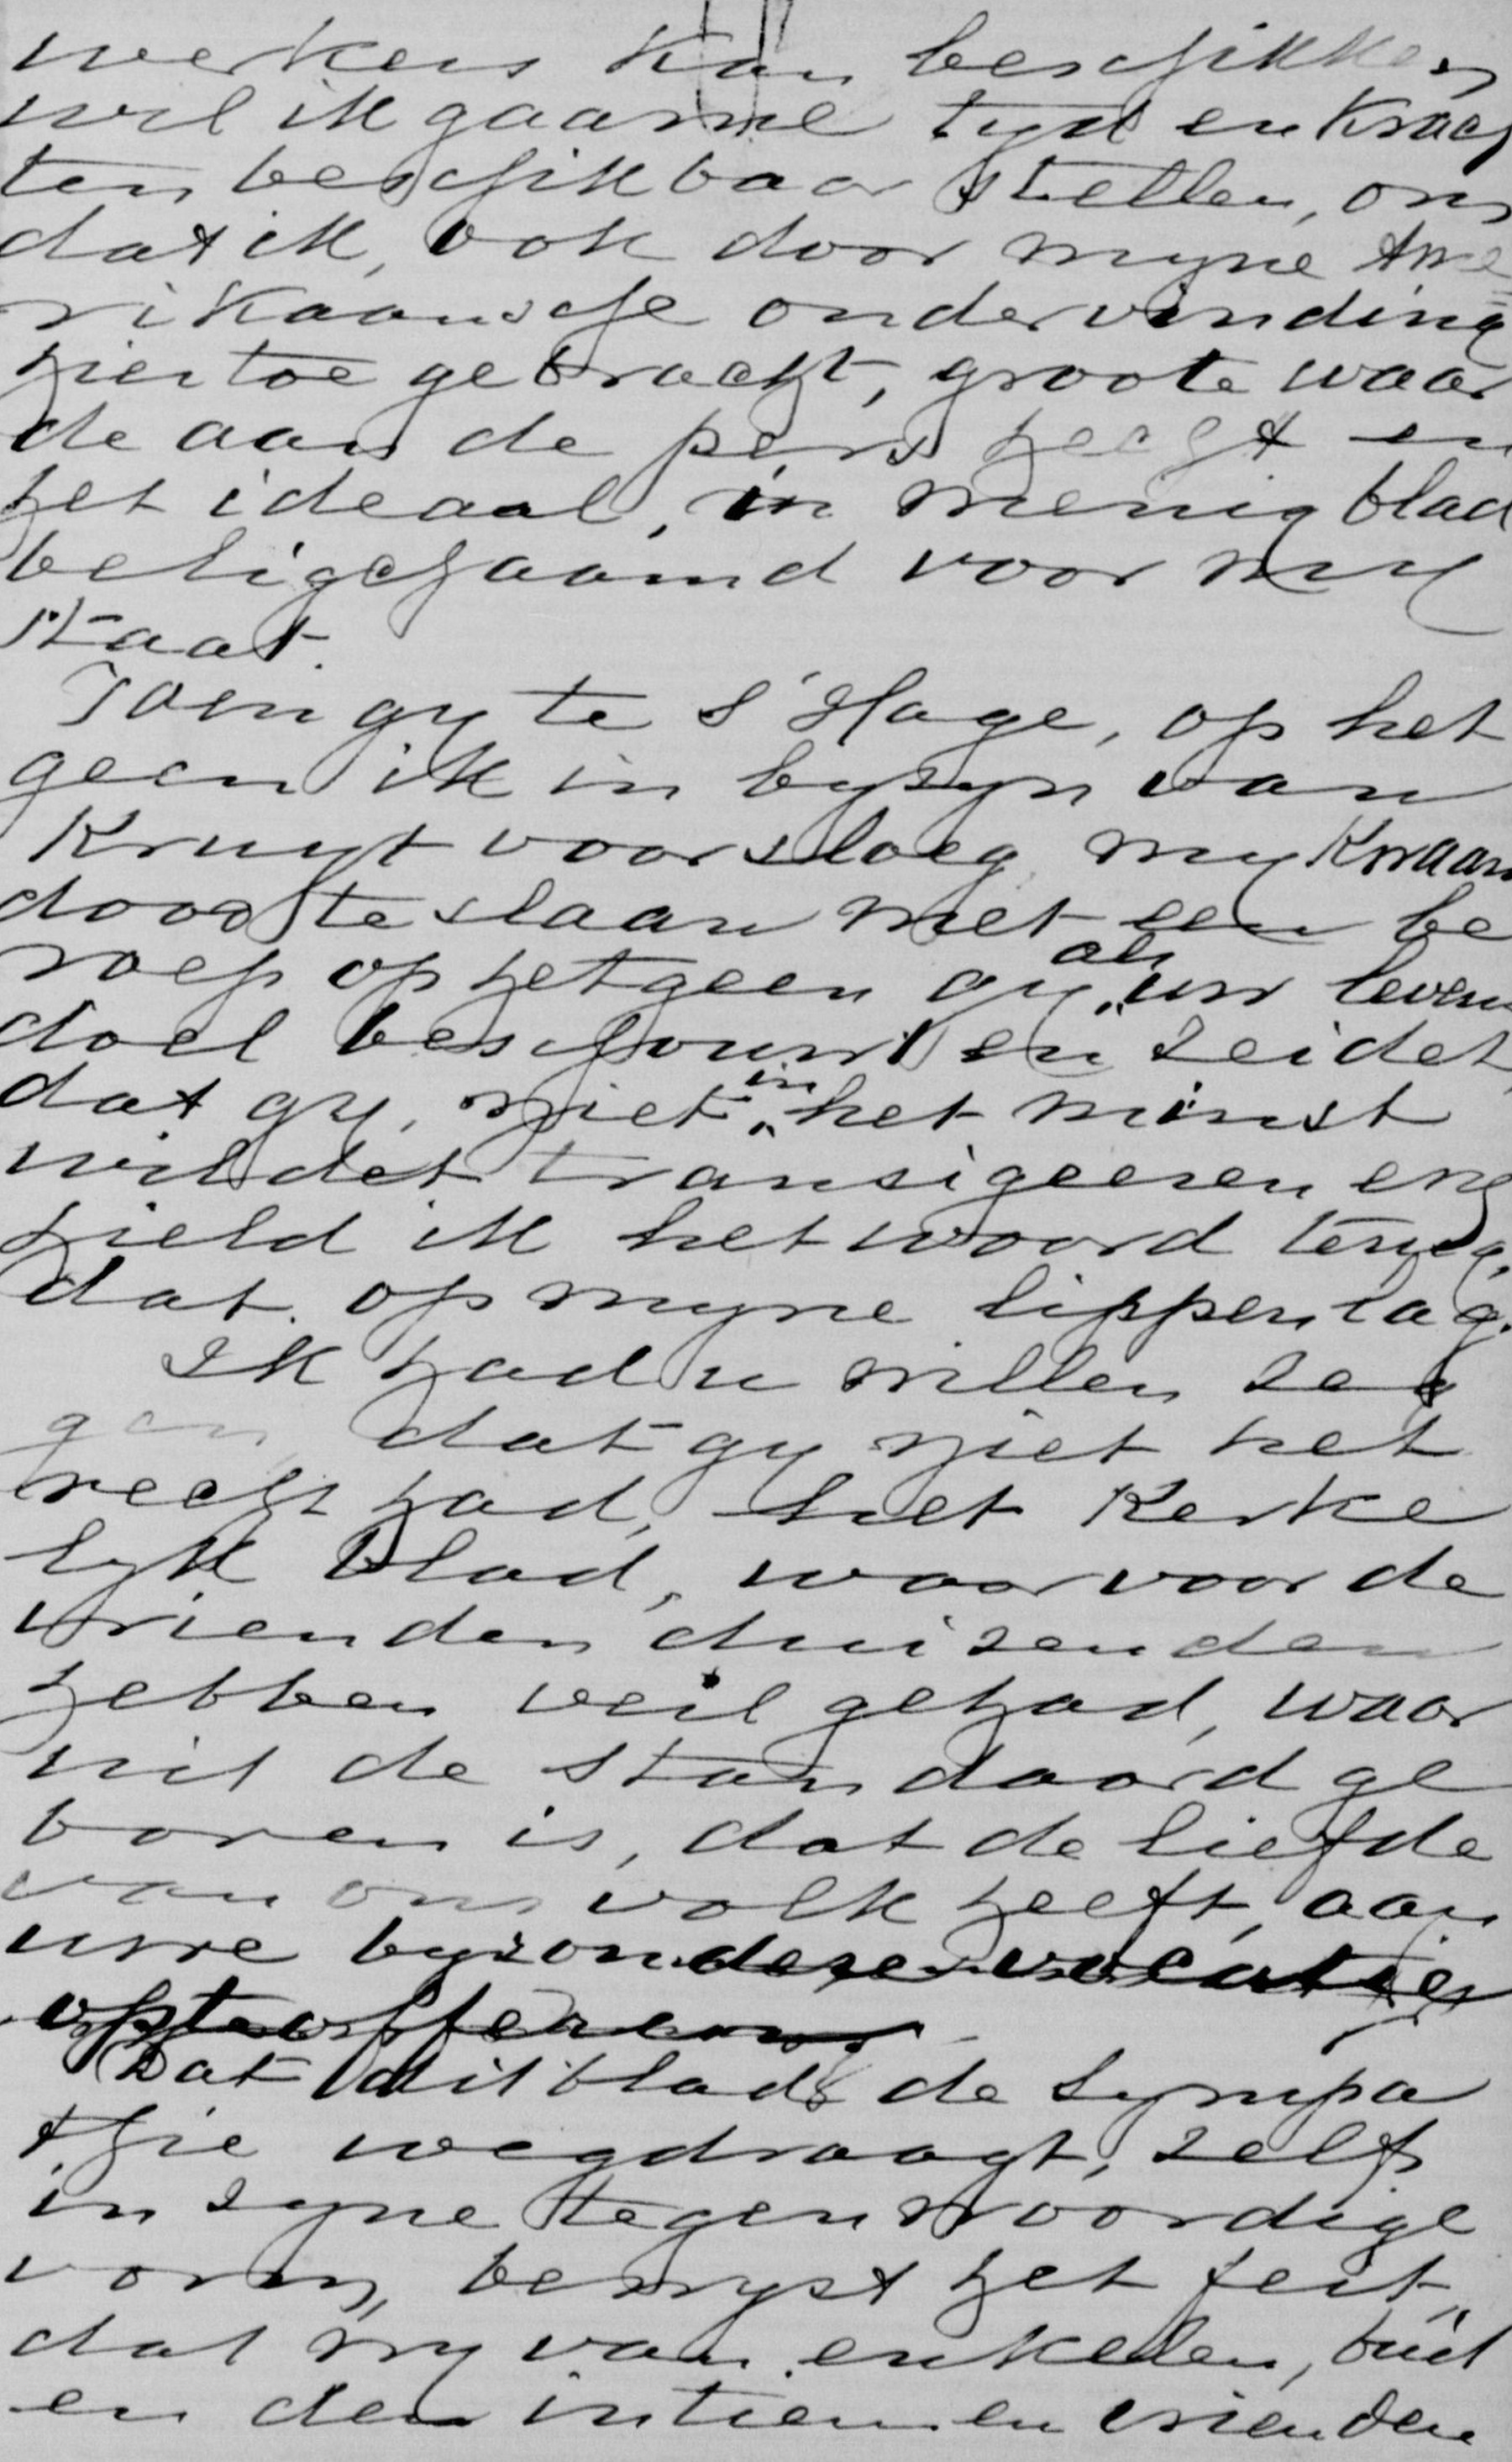 werkers kan beschikken
wil ik gaarne tyd en krach
ten beschikbaar stellen, om
dat ik, ook door myne Ame
rikaansche ondervinding
hiertoe gebracht, groote waar
de aan de pers hecht en
het ideaal, in menig blad
belichaamd voor my
staat.
Toen gy te s'Hage, op het
geen ik in byzyn van
Kruyt voorsloeg my kwaam
door te slaan met een be
roep op hetgeen gy als uw levens
doel beschouwt en zeidet
dat gy, niet in het minst
wildet transigeeren en
hield ik het woord terug,
dat op myne lippen lag.
Ik had u willen zeg
gen dat gy niet het
recht had, het Kerke
lyk blad, waarvoor de
vrienden duizenden
hebben veil gehad, waar
uit de Standaard ge
boren is, dat de liefde
van ons volk heeft, aan
uwe byzondere vocatie
opteofferen
Dat dit blad de sympa
thie wegdraagt, zelfs
in zyne tegenwoordige
vorm, bewyst het feit,
dat wy van enkelen, buit
en den intiemen vrienden